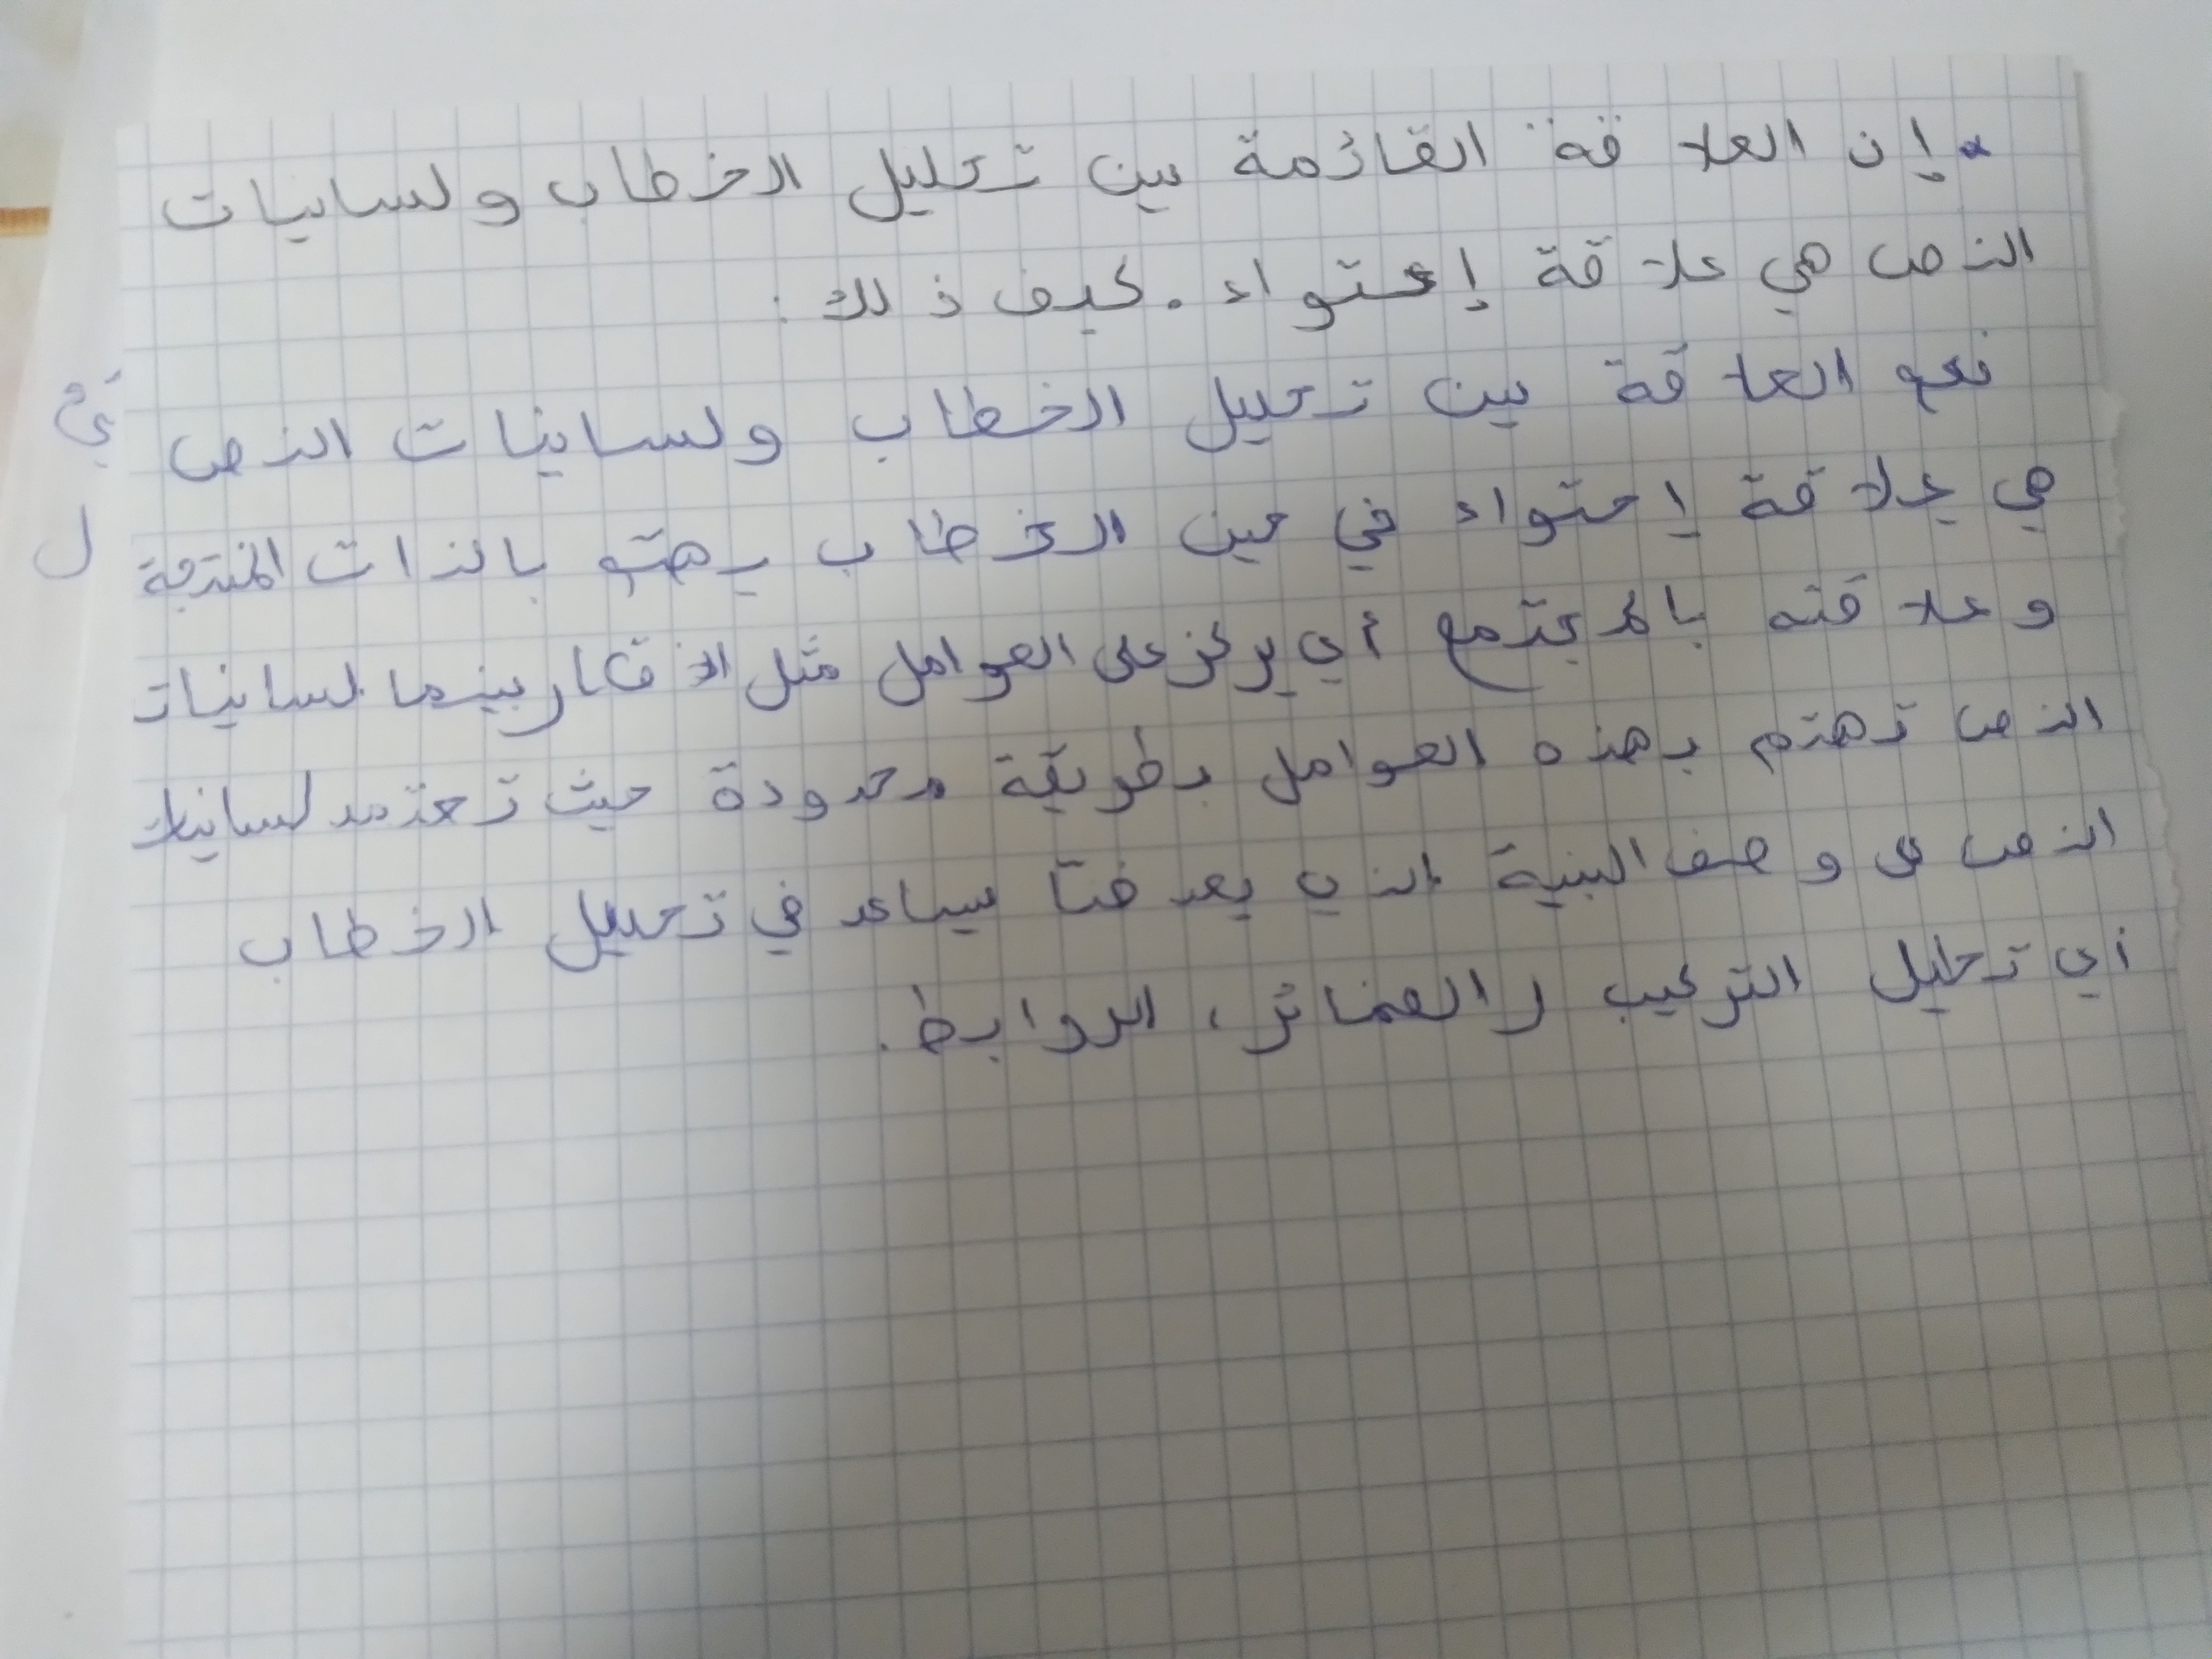 * إن العلاقة القائمة بين تحليل الخطاب ولسانيات
النص هي علاقة إحتواء . كيف ذلك :
نعم العلاقة بين تحليل الخطاب ولسانيات النص
هي علاقة إحتواء في حين الخطاب يهتم بالذات المنتجة
وعلاقته بالمجتمع أي يركز على العوامل مثل الأفكار بينما لسانيات
النص تهتم بهذه العوامل بطريقة محدودة حيث تعتمد لسانيات
النص على وصف البنية الذي يساعد في تحليل الخطاب
أي تحليل التركيب (الضمائر، الروابط.